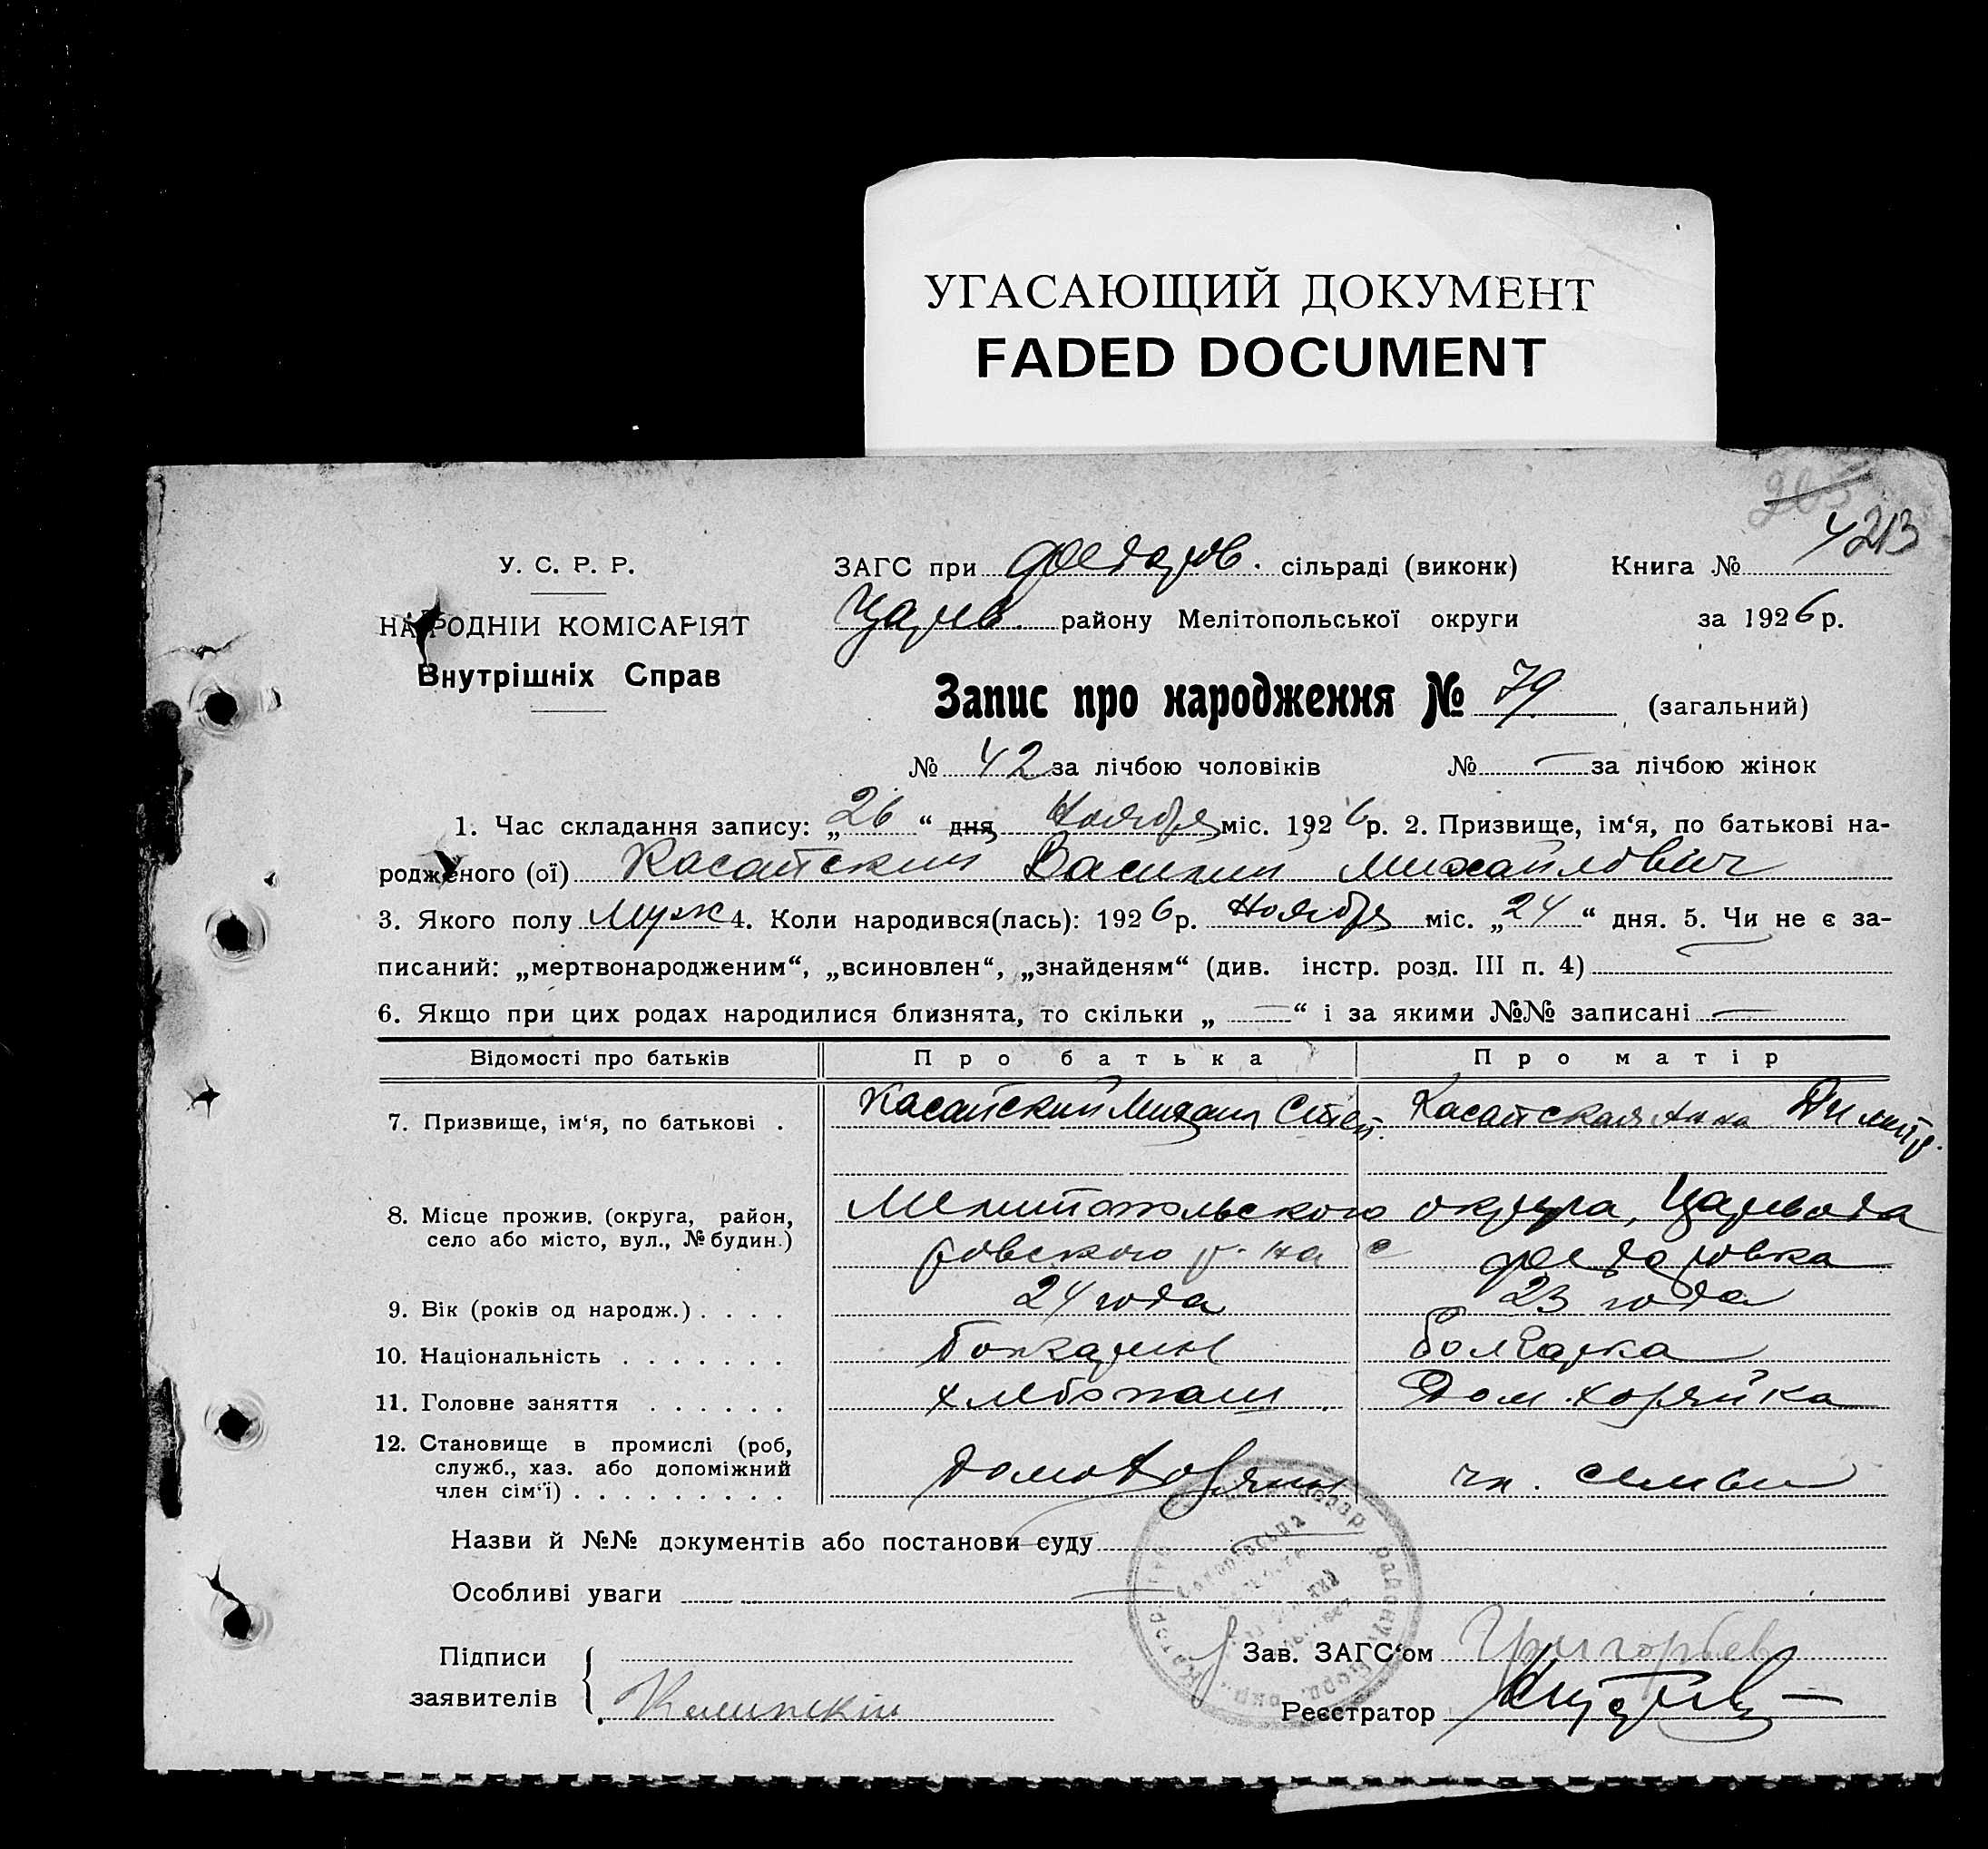 УГАСАЮЩИЙ ДОКУМЕНТ
FADED DOCUMENT
4213
У. С. Р. Р.
НАРОДНІЙ КОМІСАРІЯТ
Внутрішніх Справ
ЗАГС при Федоров. сільраді (виконк) Книга №
Царев. району Мелітопольської округи за 1926 р.
Запис про народження № 79 (загальний)
№ 42 за лічбою чоловіків № — за лічбою жінок
1. Час складання запису: „26“ дня Ноября міс. 1926 р. 2. Призвище, ім‘я, по батькові на-
родженого (ої) Касапский Василий Михайлович
3. Якого полу Муж 4. Коли народився(лась): 1926 р. Ноября міс. „24“ дня. 5. Чи не є за-
писаний: „мертвонародженим“, „всиновлен“, „знайденям“ (див. інстр. розд. III п. 4) —
6. Якщо при цих родах народилися близнята, то скільки „—“ і за якими №№ записані —
Відомості про батьків Про батька Про матір
7. Призвище, ім‘я, по батькові . Касапский Михаил Степ. Касапская Анна Димитр.
8. Місце прожив. (округа, район, село або місто, вул., № будин.) Мелитопольского округа, Царевода
ровского р-на с Федоровка
9. Вік (років од народж.) . . . . 24 года 23 года
10. Національність . . . . . . . Болгарин Болгарка
11. Головне заняття . . . . . . хлебопаш. Дом. хозяйка
12. Становище в промислі (роб, служб., хаз. або допоміжний член сім‘ї) . . . . . . . . . домохозяин чл. семьи
Назви й №№ документів або постанови суду —
Особливі уваги —
Підписи
заявителів
Зав. ЗАГС‘ом Григорьев
Реєстратор